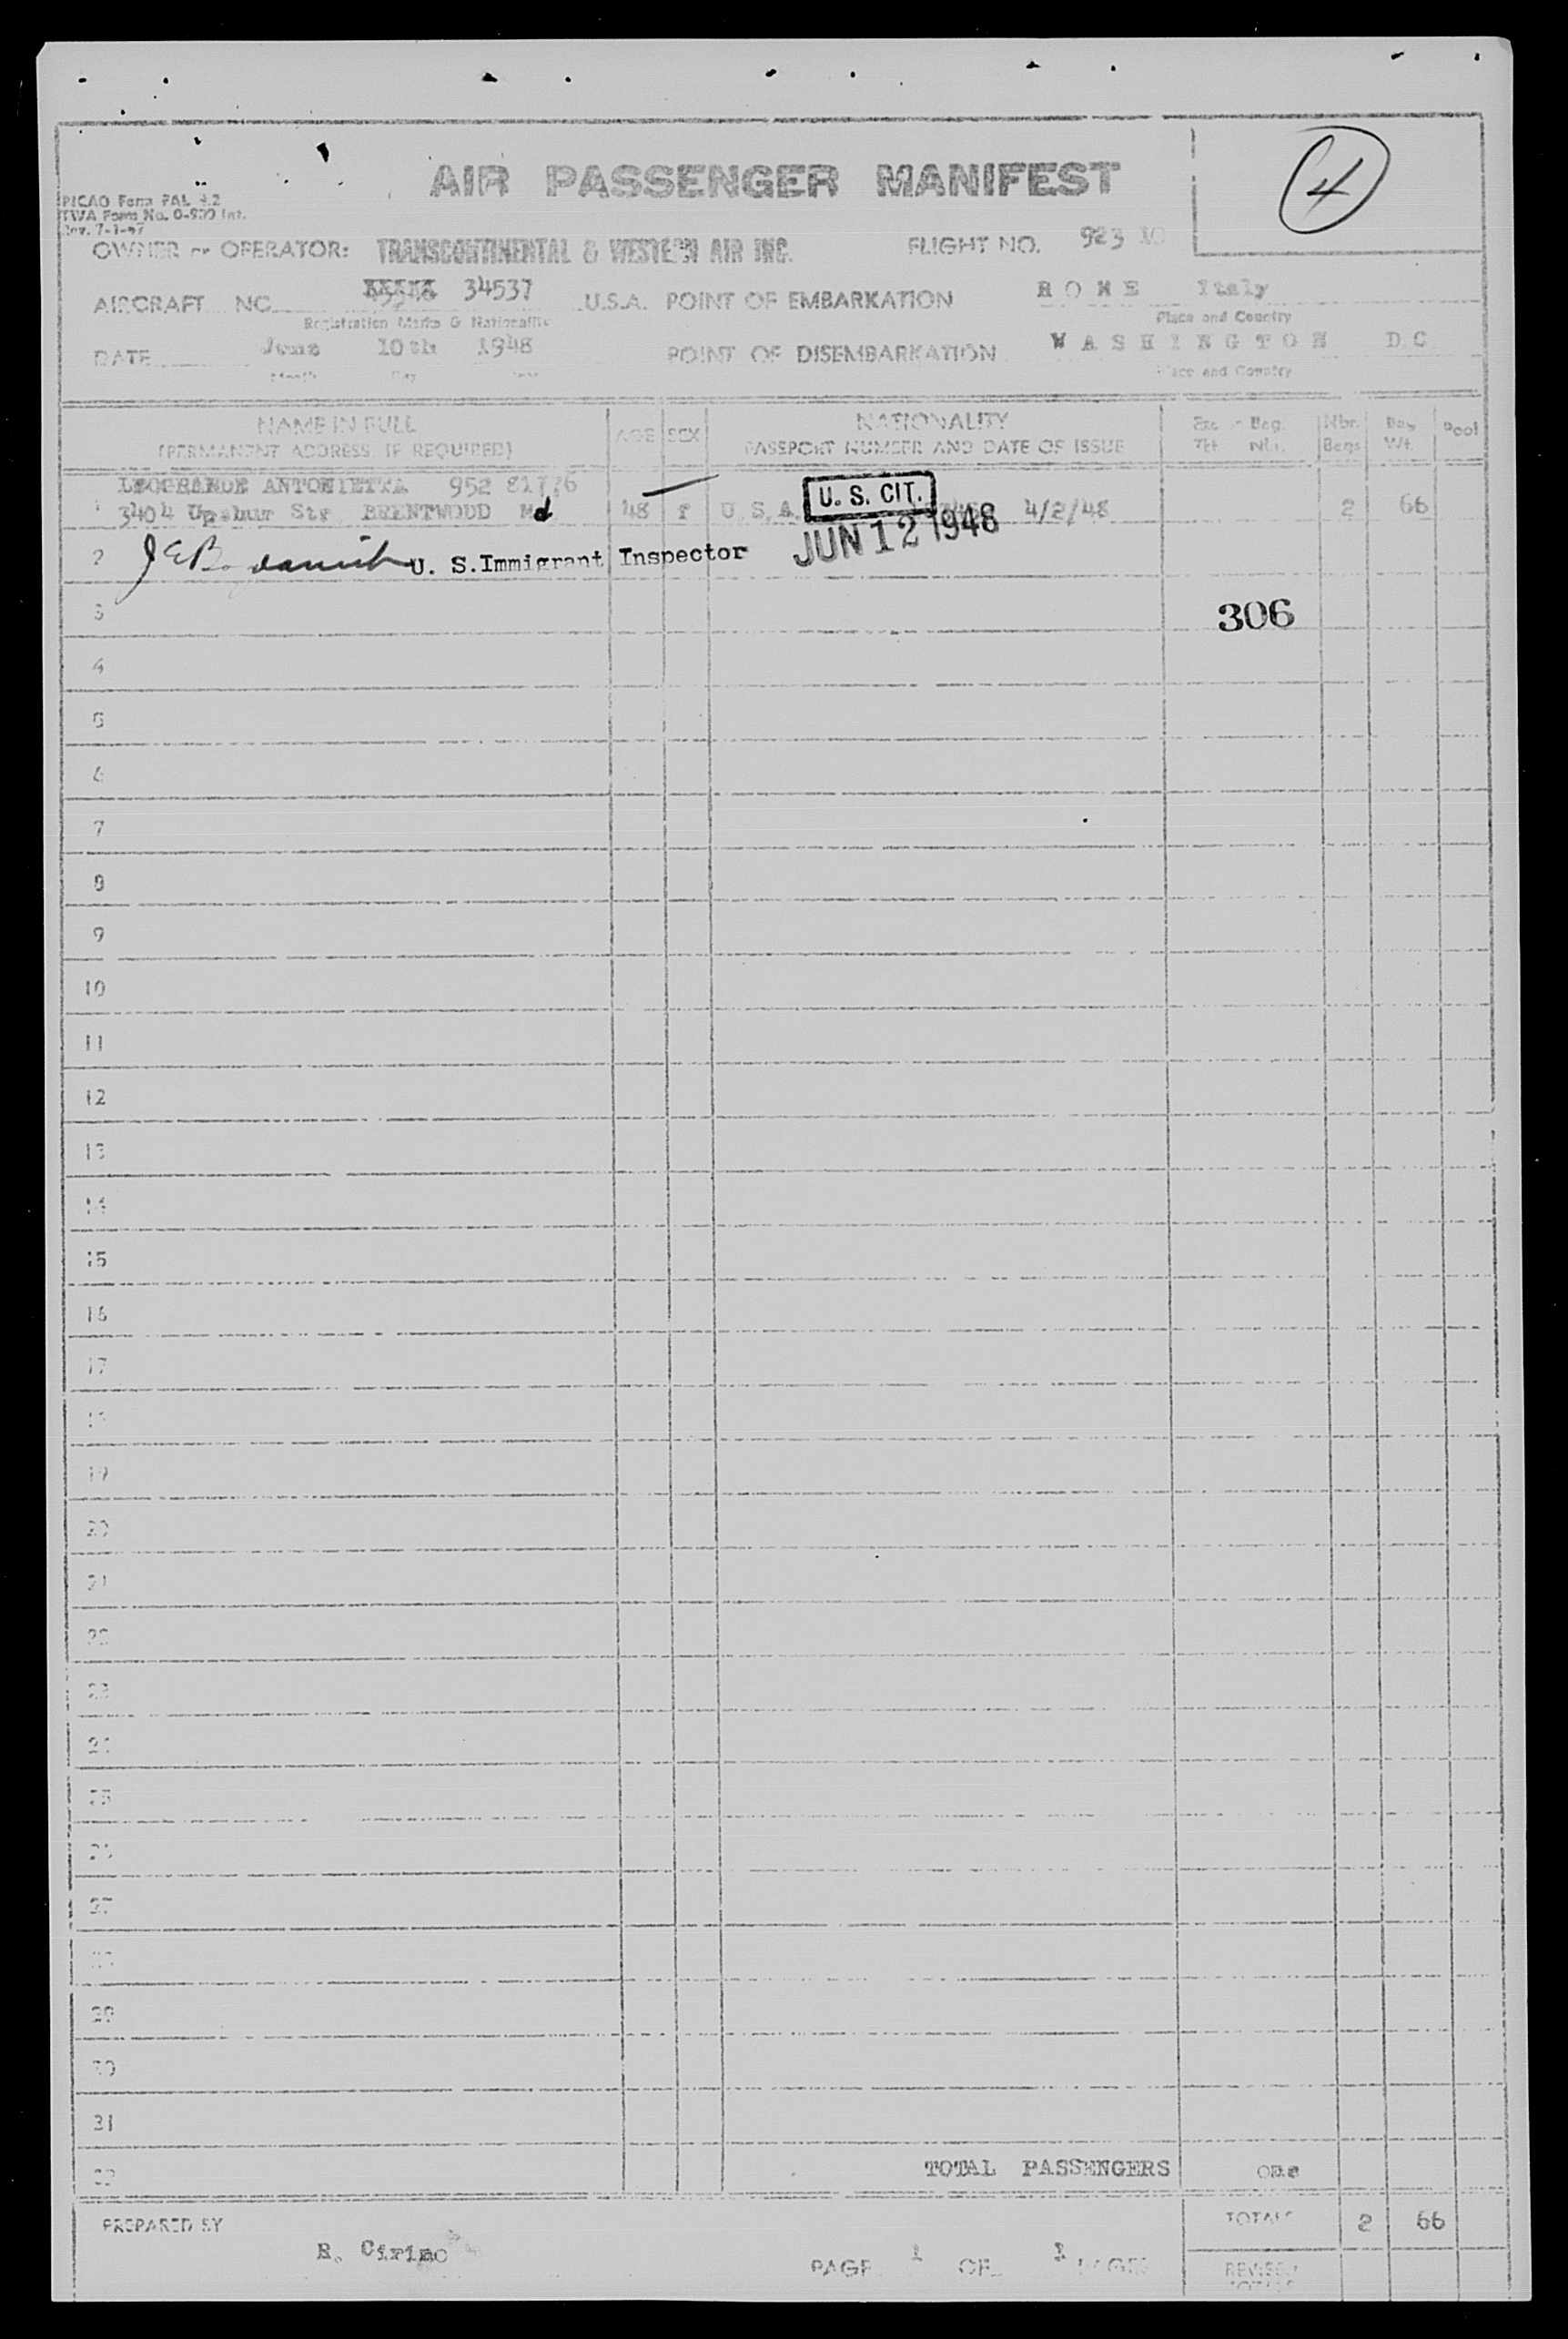 4
AIR PASSENGER MANIFEST
PICAO Form PAL 9.2
TWA Form No. 0-900 Int.
Rev. 7-1-47
OWNER or OPERATOR: TRANSCONTINENTAL & WESTERN AIR INC. FLIGHT NO. 923 10
AIRCRAFT NC 34537 U.S.A. POINT OF EMBARKATION ROME Italy
Registration Marks & Nationality Place and Country
DATE June 10th 1948 POINT OF DISEMBARKATION WASHINGTON D C
Month Day Year Place and Country
NAME IN FULL AGE SEX NATIONALITY Exc Bag. Nbr. Bag Pool
(PERMANENT ADDRESS IF REQUIRED) PASSPORT NUMBER AND DATE OF ISSUE Tkt No. Bags Wt.
LEOGRANDE ANTONIETTA 952 81776
1 3404 Upshur Str BRENTWOOD Md 48 F U.S.A. U. S. CIT. 4/2/48 2 66
JUN 12 1948
2 U. S. Immigrant Inspector
3 306
4
5
6
7
8
9
10
11
12
13
14
15
16
17
18
19
20
21
22
23
24
25
26
27
28
29
30
31
32 TOTAL PASSENGERS One
PREPARED BY TOTALS 2 66
R. Cirino PAGE 1 OF 1 PAGES
REVISED
TOTALS